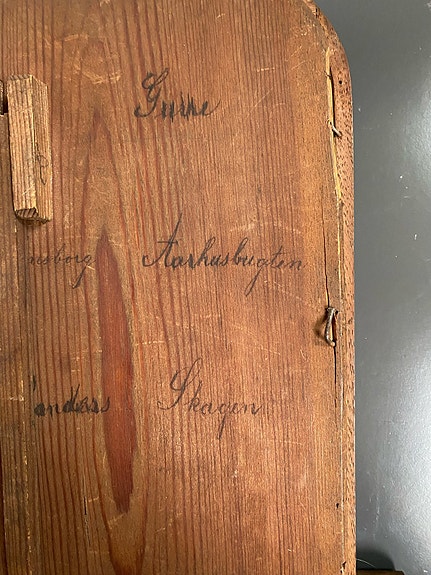 Gurre
nsborg Aarhusbugten
anders Skagen